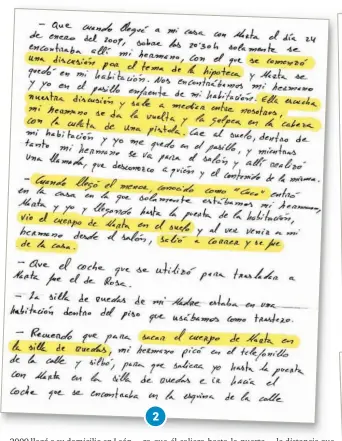 - Que cuando llegué a mi casa con Marta el día 24
de enero del 2009, sobre las 20'30h solamente se
encontraba allí mi hermano, con el que se comenzó
una discusión por el tema de la hipoteca y Marta se
quedó en mi habitación. Nos encontrábamos mi hermano
y yo en el pasillo enfrente de mi habitación. Ella escucha
nuestra discusión y sale a mediar entre nosotros,
mi hermano se da la vuelta y la golpea en la cabeza
con la culata de una pistola. Cae al suelo, dentro de
mi habitación y yo me quedo en el pasillo, y mientras
tanto mi hermano se va para el salón y allí realizó
una llamada, que desconozco a quién y el contenido de la misma.
- Cuando llegó el menor, conocido como "Cuco" entró
en la casa en la que solamente estábamos mi hermano,
Marta y yo y llegando hasta la puerta de la habitación,
vio el cuerpo de Marta en el suelo y al ver venir a mi
hermano desde el salón, salió a correr y se fue
de la casa.
- Que el coche que se utilizó para trasladar a
Marta fue el de Rosa.
- La silla de ruedas de mi Madre estaba en una
habitación dentro del piso que usábamos como trastero.
- Recuerdo que para sacar el cuerpo de Marta en
la silla de ruedas, mi hermano picó en el telefonillo
de la calle y silbó, para que saliera yo hasta la puerta
con Marta en la silla de ruedas e ir hacia el
coche que se encontraba en la esquina de la calle
2